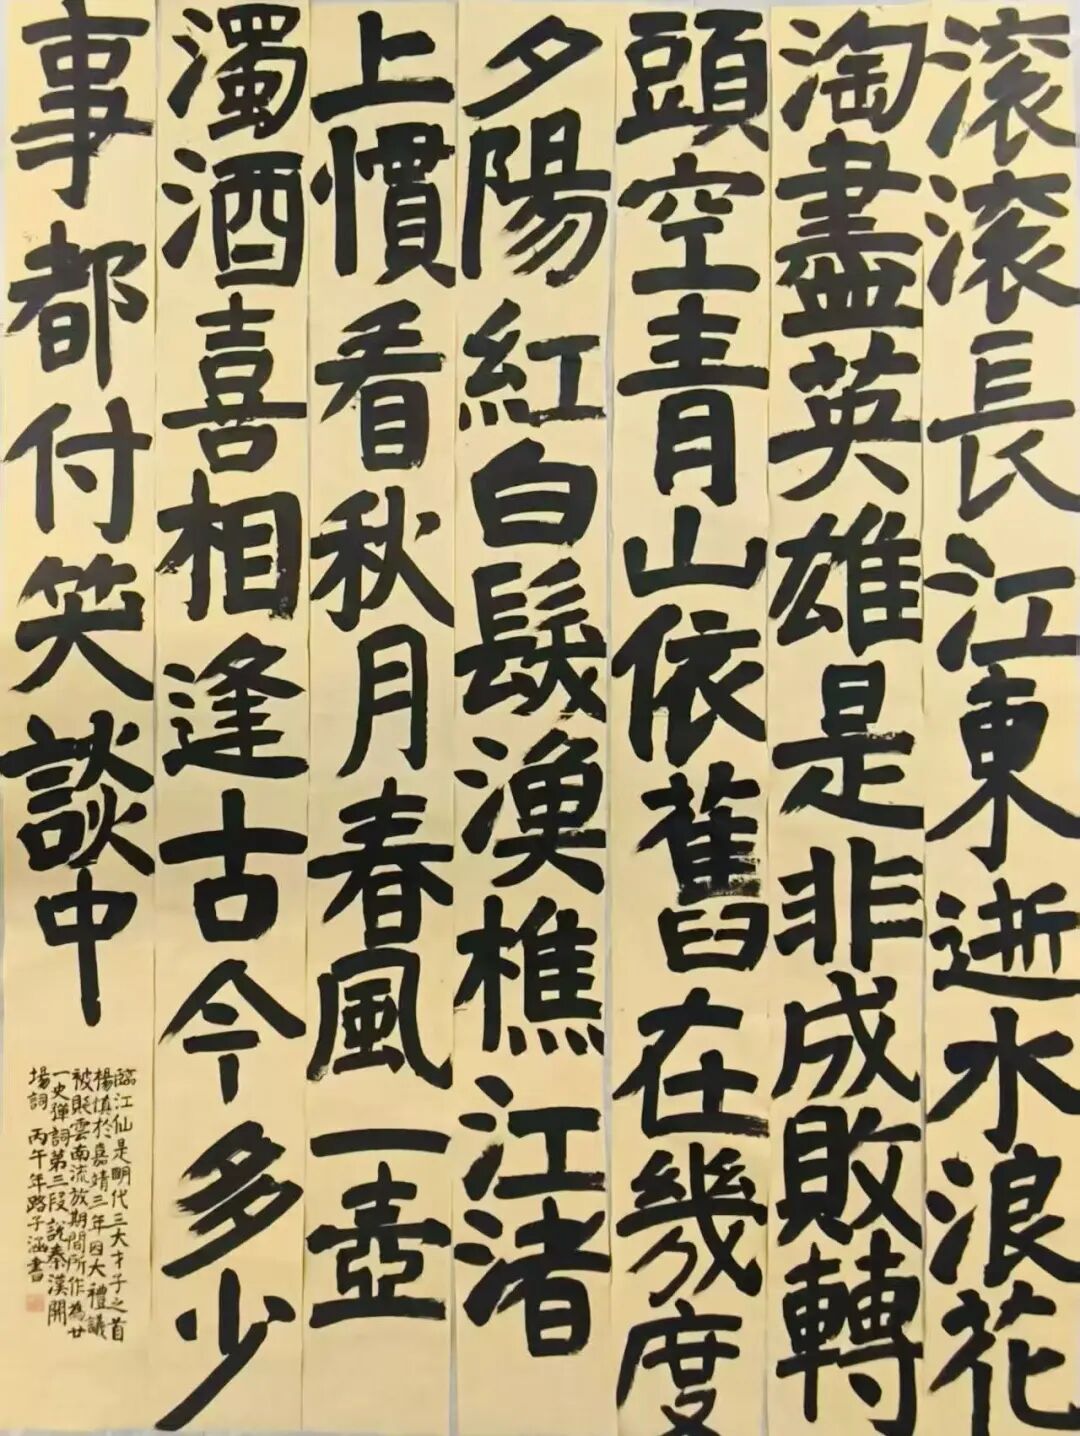 滚滚長江東逝水浪花
淘盡英雄是非成敗轉
頭空青山依舊在幾度
夕陽紅白髮漁樵江渚
上慣看秋月春風一壺
濁酒喜相逢古今多少
事都付笑談中
臨江仙是明代三大才子之首
楊慎於嘉靖三年因大禮議
被貶雲南流放期間所作為廿
一史彈詞第三段說秦漢開
場詞 丙午年路子涵書